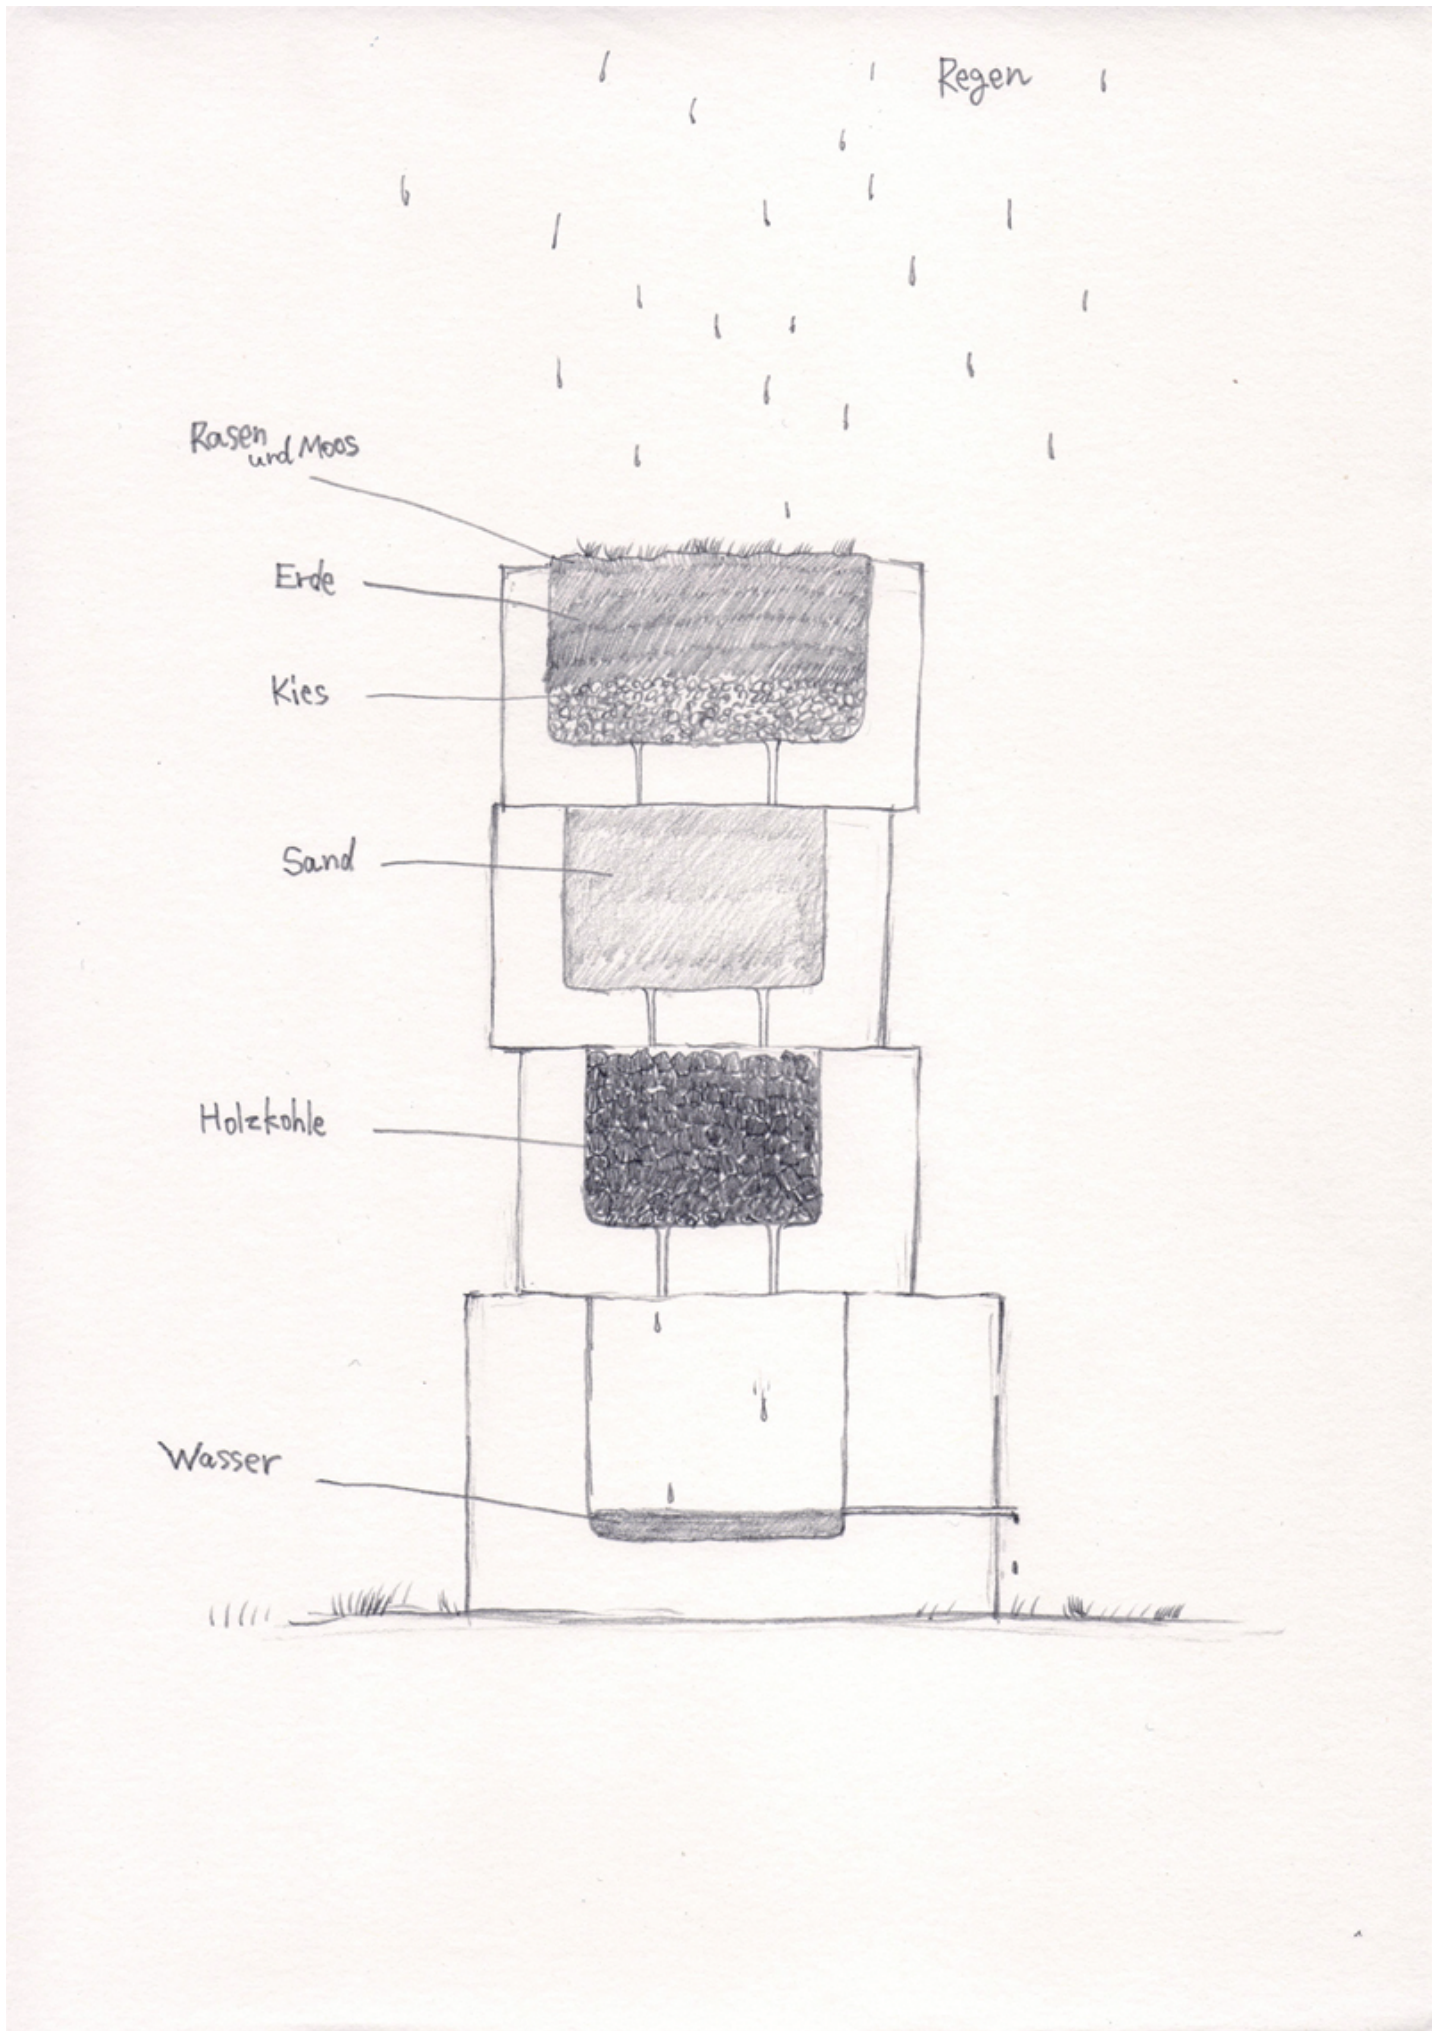 Regen
Rasen
und Moos
Erde
Kies
Sand
Holzkohle
Wasser